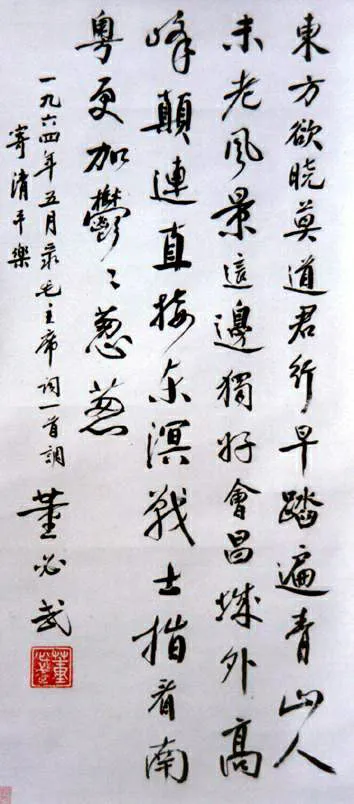 東方欲晓莫道君行早踏遍青山人
未老风景這邊獨好會昌城外高
峰顛連直接东溟战士指看南
粤更加鬱〻葱葱
一九六四年五月录毛主席词一首調
寄清平樂
董必武